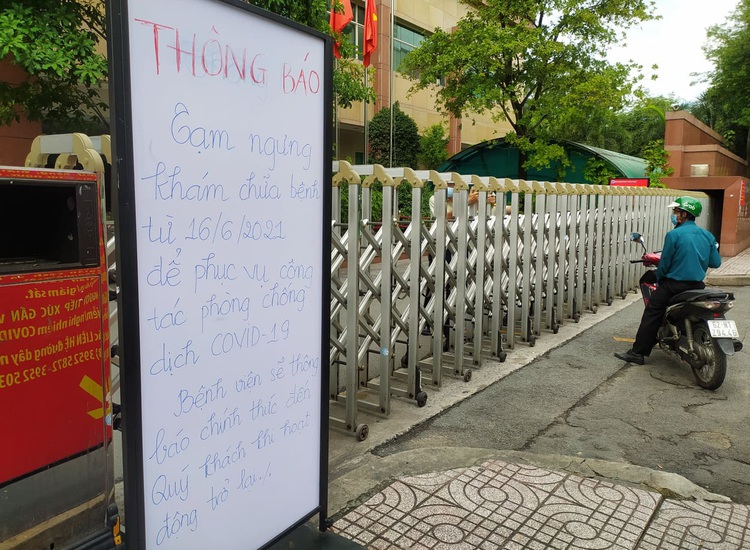 THÔNG BÁO
Tạm ngưng
khám chữa bệnh
từ 16/6/2021
để phục vụ công
tác phòng chống
dịch COVID-19
Bệnh viện sẽ thông
báo chính thức đến
Quý khách khi hoạt
động trở lại./.
giám sát.
TIẾP XÚC GẦN V
nghi nhiễm COVID
LIÊN HỆ đường dây n
3952 5872-3952 503